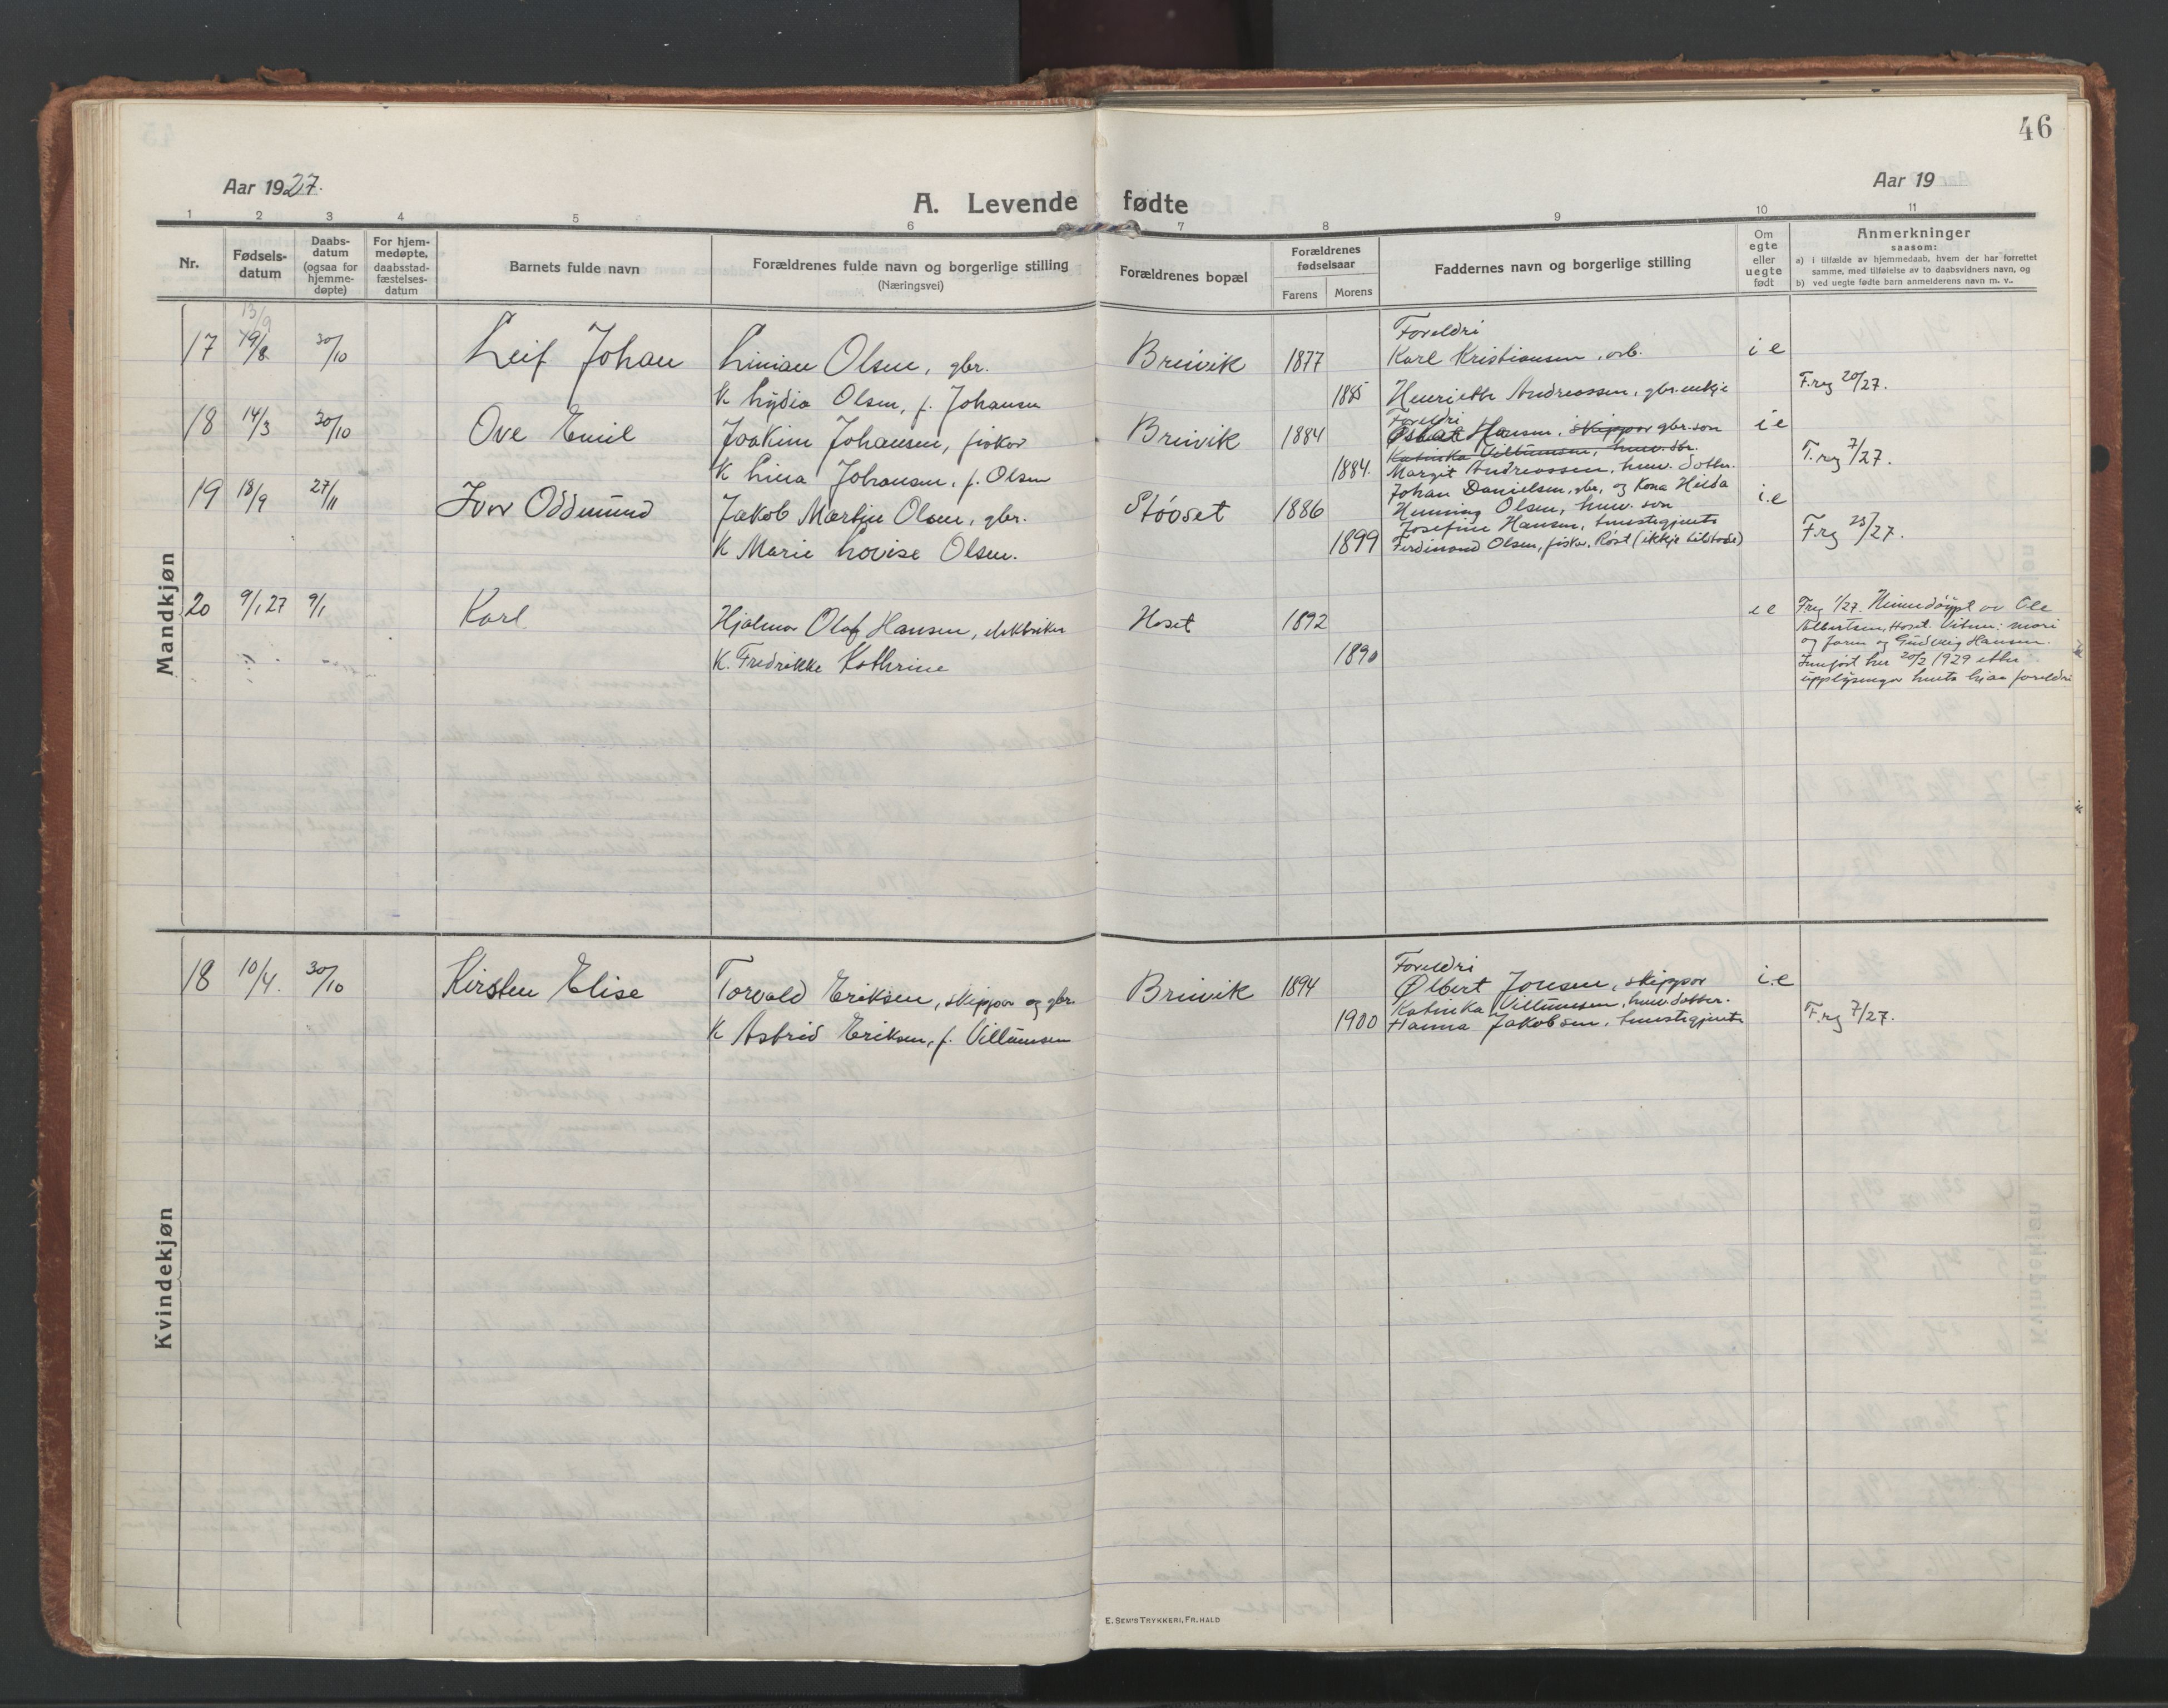 46
Aar 1927.
Aar 19
A. Levende fødte
1 2 3 4 5 6 7 8 9 10 11
Nr.
Fødsels-
datum
Daabs-
datum
(ogsaa for
hjemme-
døpte)
For hjem-
medøpte,
daabsstad-
fæstelses-
datum
Barnets fulde navn
Forældrenes fulde navn og borgerlige stilling
(Næringsvei)
Forældrenes bopæl
Forældrenes
fødselsaar
Farens Morens
Faddernes navn og borgerlige stilling
Om
egte
eller
uegte
født
Anmerkninger
saasom:
a) i tilfælde av hjemmedaab, hvem der har forrettet
samme, med tilføielse av to daabsvidners navn, og
b) ved uegte fødte barn anmelderens navn m. v..
Mandkjøn
13/9
17 19/8 30/10 Leif Johan Linian Olsen, gbr. Breivik 1877 Foreldri
Karl Kristiansen, arb. i e
K Lydia Olsen, f. Johansen 1885 Henriette Andreassen, gbr.enkje F.reg 20/27.
18 14/3 30/10 Ove Emil Joakim Johansen, fiskar Breivik 1884 Foreldri
Hansen, skippar gbr.son i e
Katinka Villumsen, huw. dtr.
K Lina Johansen, f. Olsen 1884. Margit Andreassen, huw. dotter. F.reg 7/27.
19 18/9 27/11 Ivar Oddmund Jakob Martin Olsen, gbr. Støvset 1886 Johan Danielsen, gbr, og kona Hilda i.e
Henning Olsen, huw. son
Josefine Hansen, tenestegjente
K Marie Lovise Olsen. 1899 Ferdinand Olsen, fiskar, Røst (ikkje tilstade) F.reg 23/27.
20 9/1 27 9/1 Karl Hjalmar Olaf Hansen, elektriker Hoset 1892 i e F.reg 1/27. Heimedøypt av Ole
Albertsen, Hoset. Vitne: mori
K. Fredrikke Kathrine 1890 og farm og Gudveig Hansen.
Innført her 20/2 1929 etter
upplysningar henta hjaa foreldri
Kvindekjøn
18 10/4. 30/10 Kirsten Elise Torvald Eriksen, skippar og gbr. Breivik 1894 Foreldri
Albert Jonsen, skippar i.e
Katinka Villumsen, huw.dotter.
K Astrid Eriksen, f. Villumsen 1900 Hanna Jakobsen, tenestegjente F.reg 7/27.
E. SEM'S TRYKKERI, FR. HALD